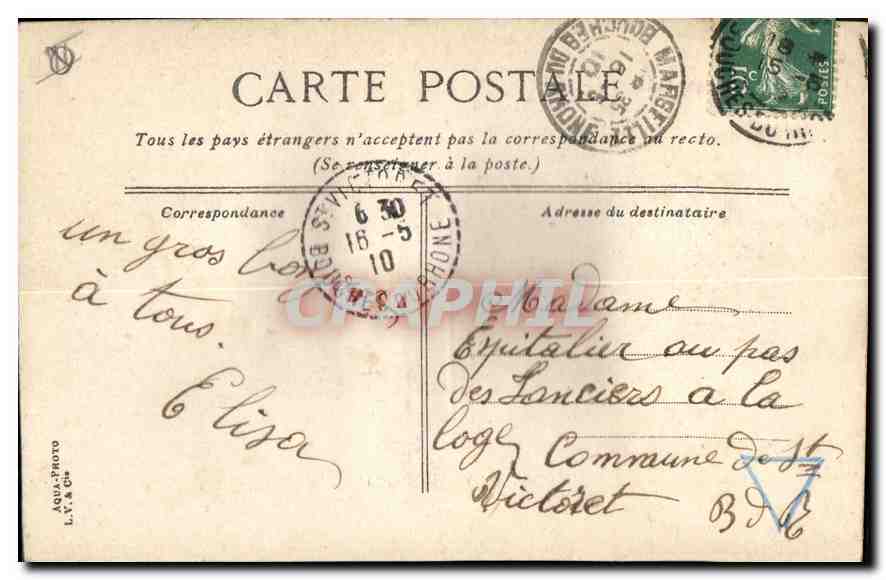 CARTE POSTALE
Tous les pays étrangers n'acceptent pas la correspondance au recto.
(Se renseigner à la poste.)
Correspondance
Adresse du destinataire
un gros
à tous.
Elisa
Madame
Espitalier au pas
des Lanciers a la
loge Commune de St
Victoret
B d R
ST VICTORET
6 30
16 -5
10
BOUCHES DU RHONE
MARSEILLE
BOUCHES DU RHONE
POSTES
CPAPHIL
AQUA-PHOTO
L.V. & Cie